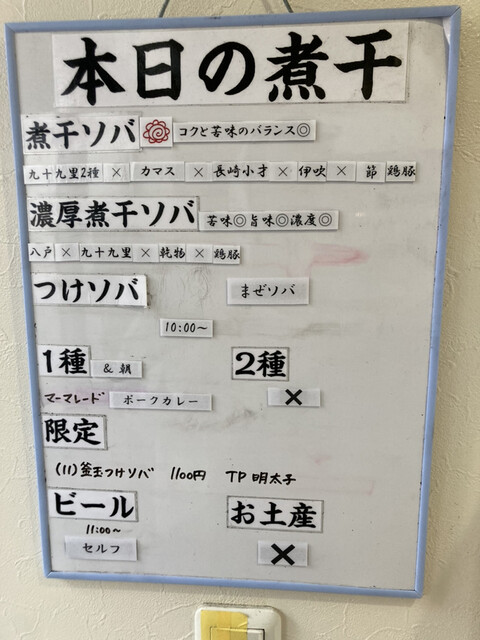 本日の煮干
煮干ソバ コクと苦味のバランス◎
九十九里2種 × カマス × 長崎小才 × 伊吹 × 節 鶏豚
濃厚煮干ソバ 苦味◎旨味◎濃度◎
八戸 × 九十九里 × 乾物 × 鶏豚
つけソバ まぜソバ
10:00～
1種 & 朝 2種
マーマレード ポークカレー ×
限定
(11) 釜玉つけソバ 1100円 TP 明太子
ビール お土産
11:00～
セルフ ×